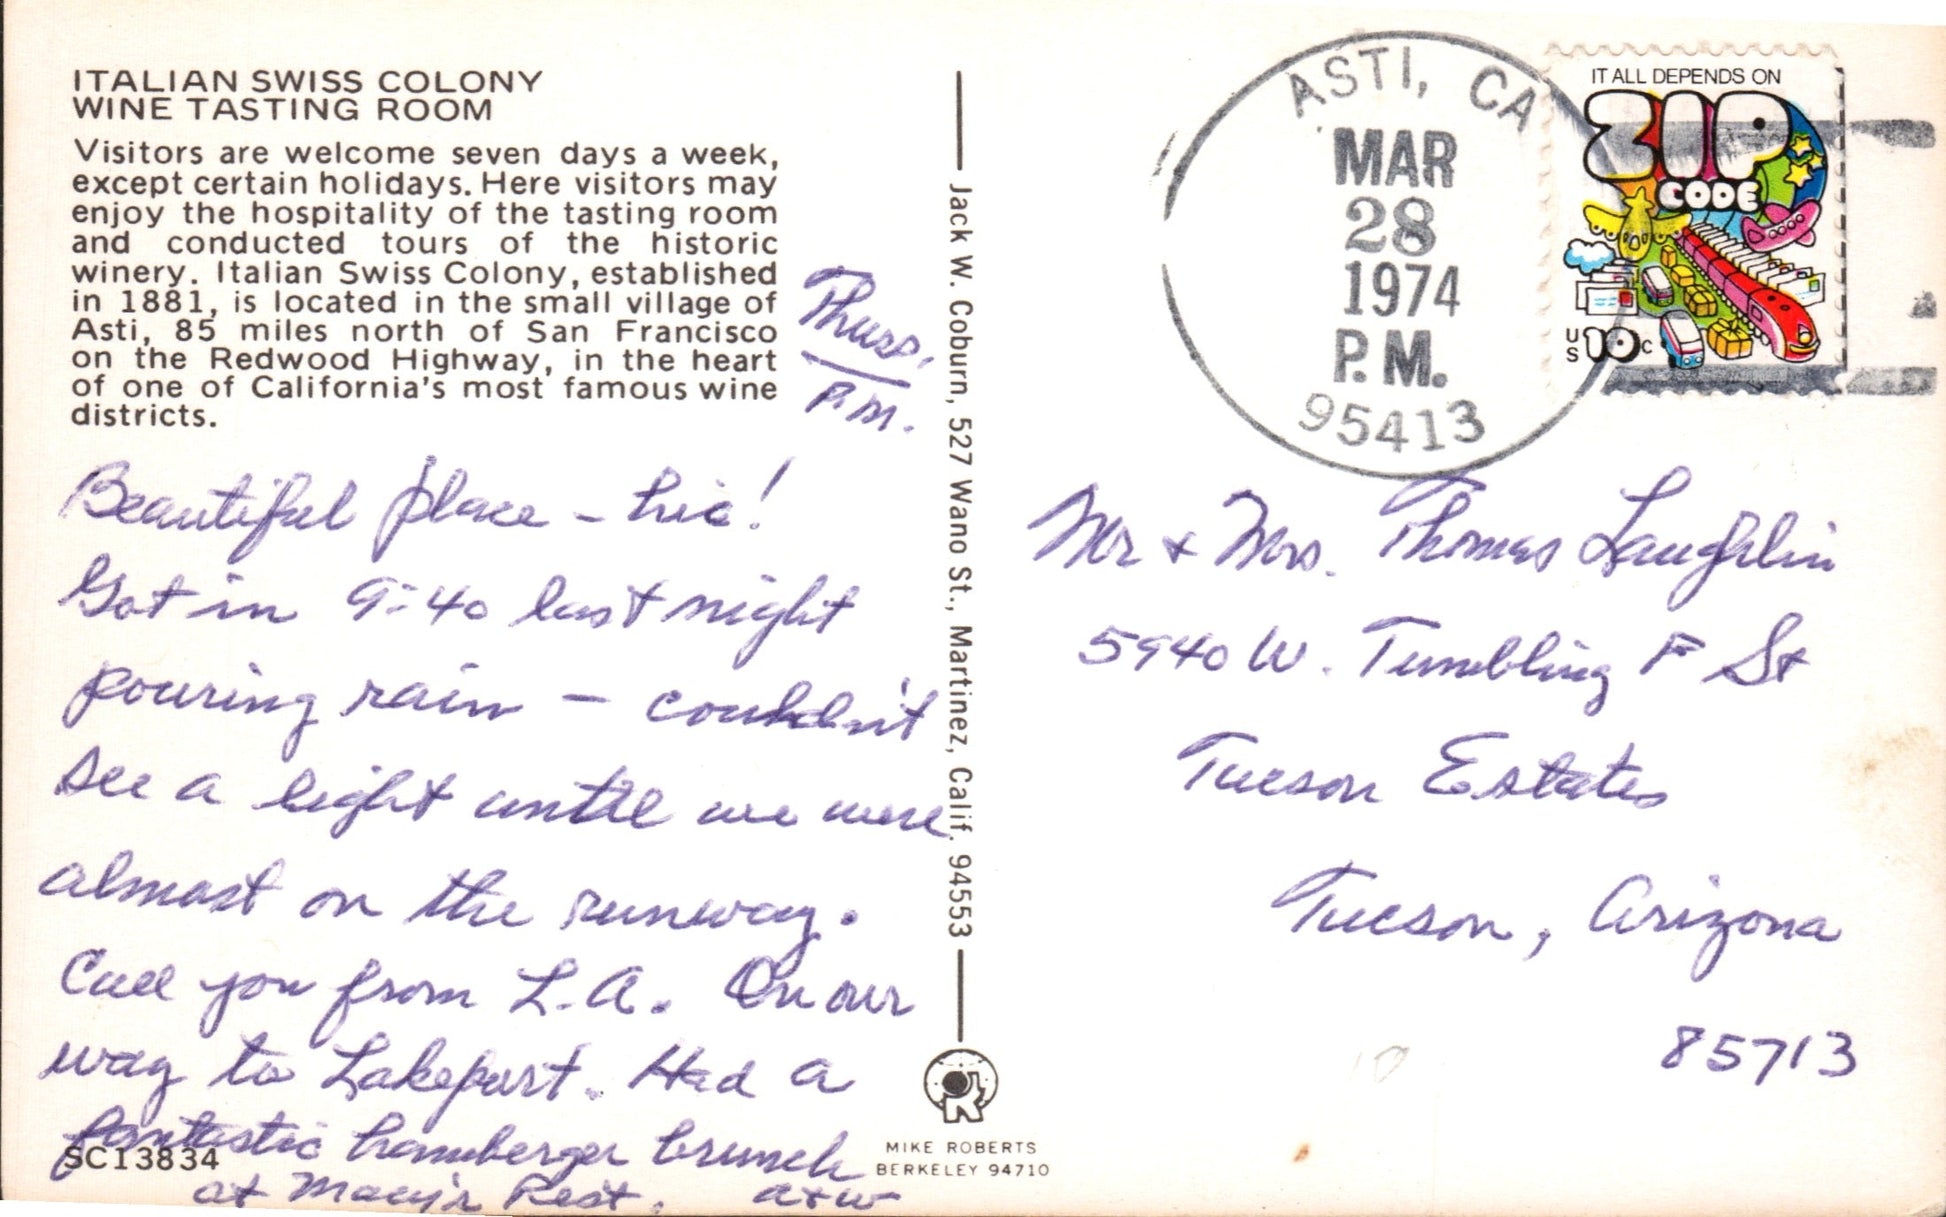 ITALIAN SWISS COLONY
WINE TASTING ROOM
Visitors are welcome seven days a week,
except certain holidays. Here visitors may
enjoy the hospitality of the tasting room
and conducted tours of the historic
winery. Italian Swiss Colony, established
in 1881, is located in the small village of
Asti, 85 miles north of San Francisco
on the Redwood Highway, in the heart
of one of California's most famous wine
districts.
Thurs.
P.M.
Beautiful place - hic!
Got in 9:40 last night
pouring rain - couldn't
see a light until we were
almost on the runway.
Call you from L.A. On our
way to Lakeport. Had a
fantastic hamberger brunch
at Macy's Rest. a+w
SC13834
Jack W. Coburn, 527 Wano St., Martinez, Calif. 94553
MIKE ROBERTS
BERKELEY 94710
ASTI, CA
MAR
28
1974
P.M.
95413
IT ALL DEPENDS ON
ZIP
CODE
US 10c
Mr + Mrs. Thomas Laughlin
5940 W. Tumbling F St
Tucson Estates
Tucson, Arizona
85713